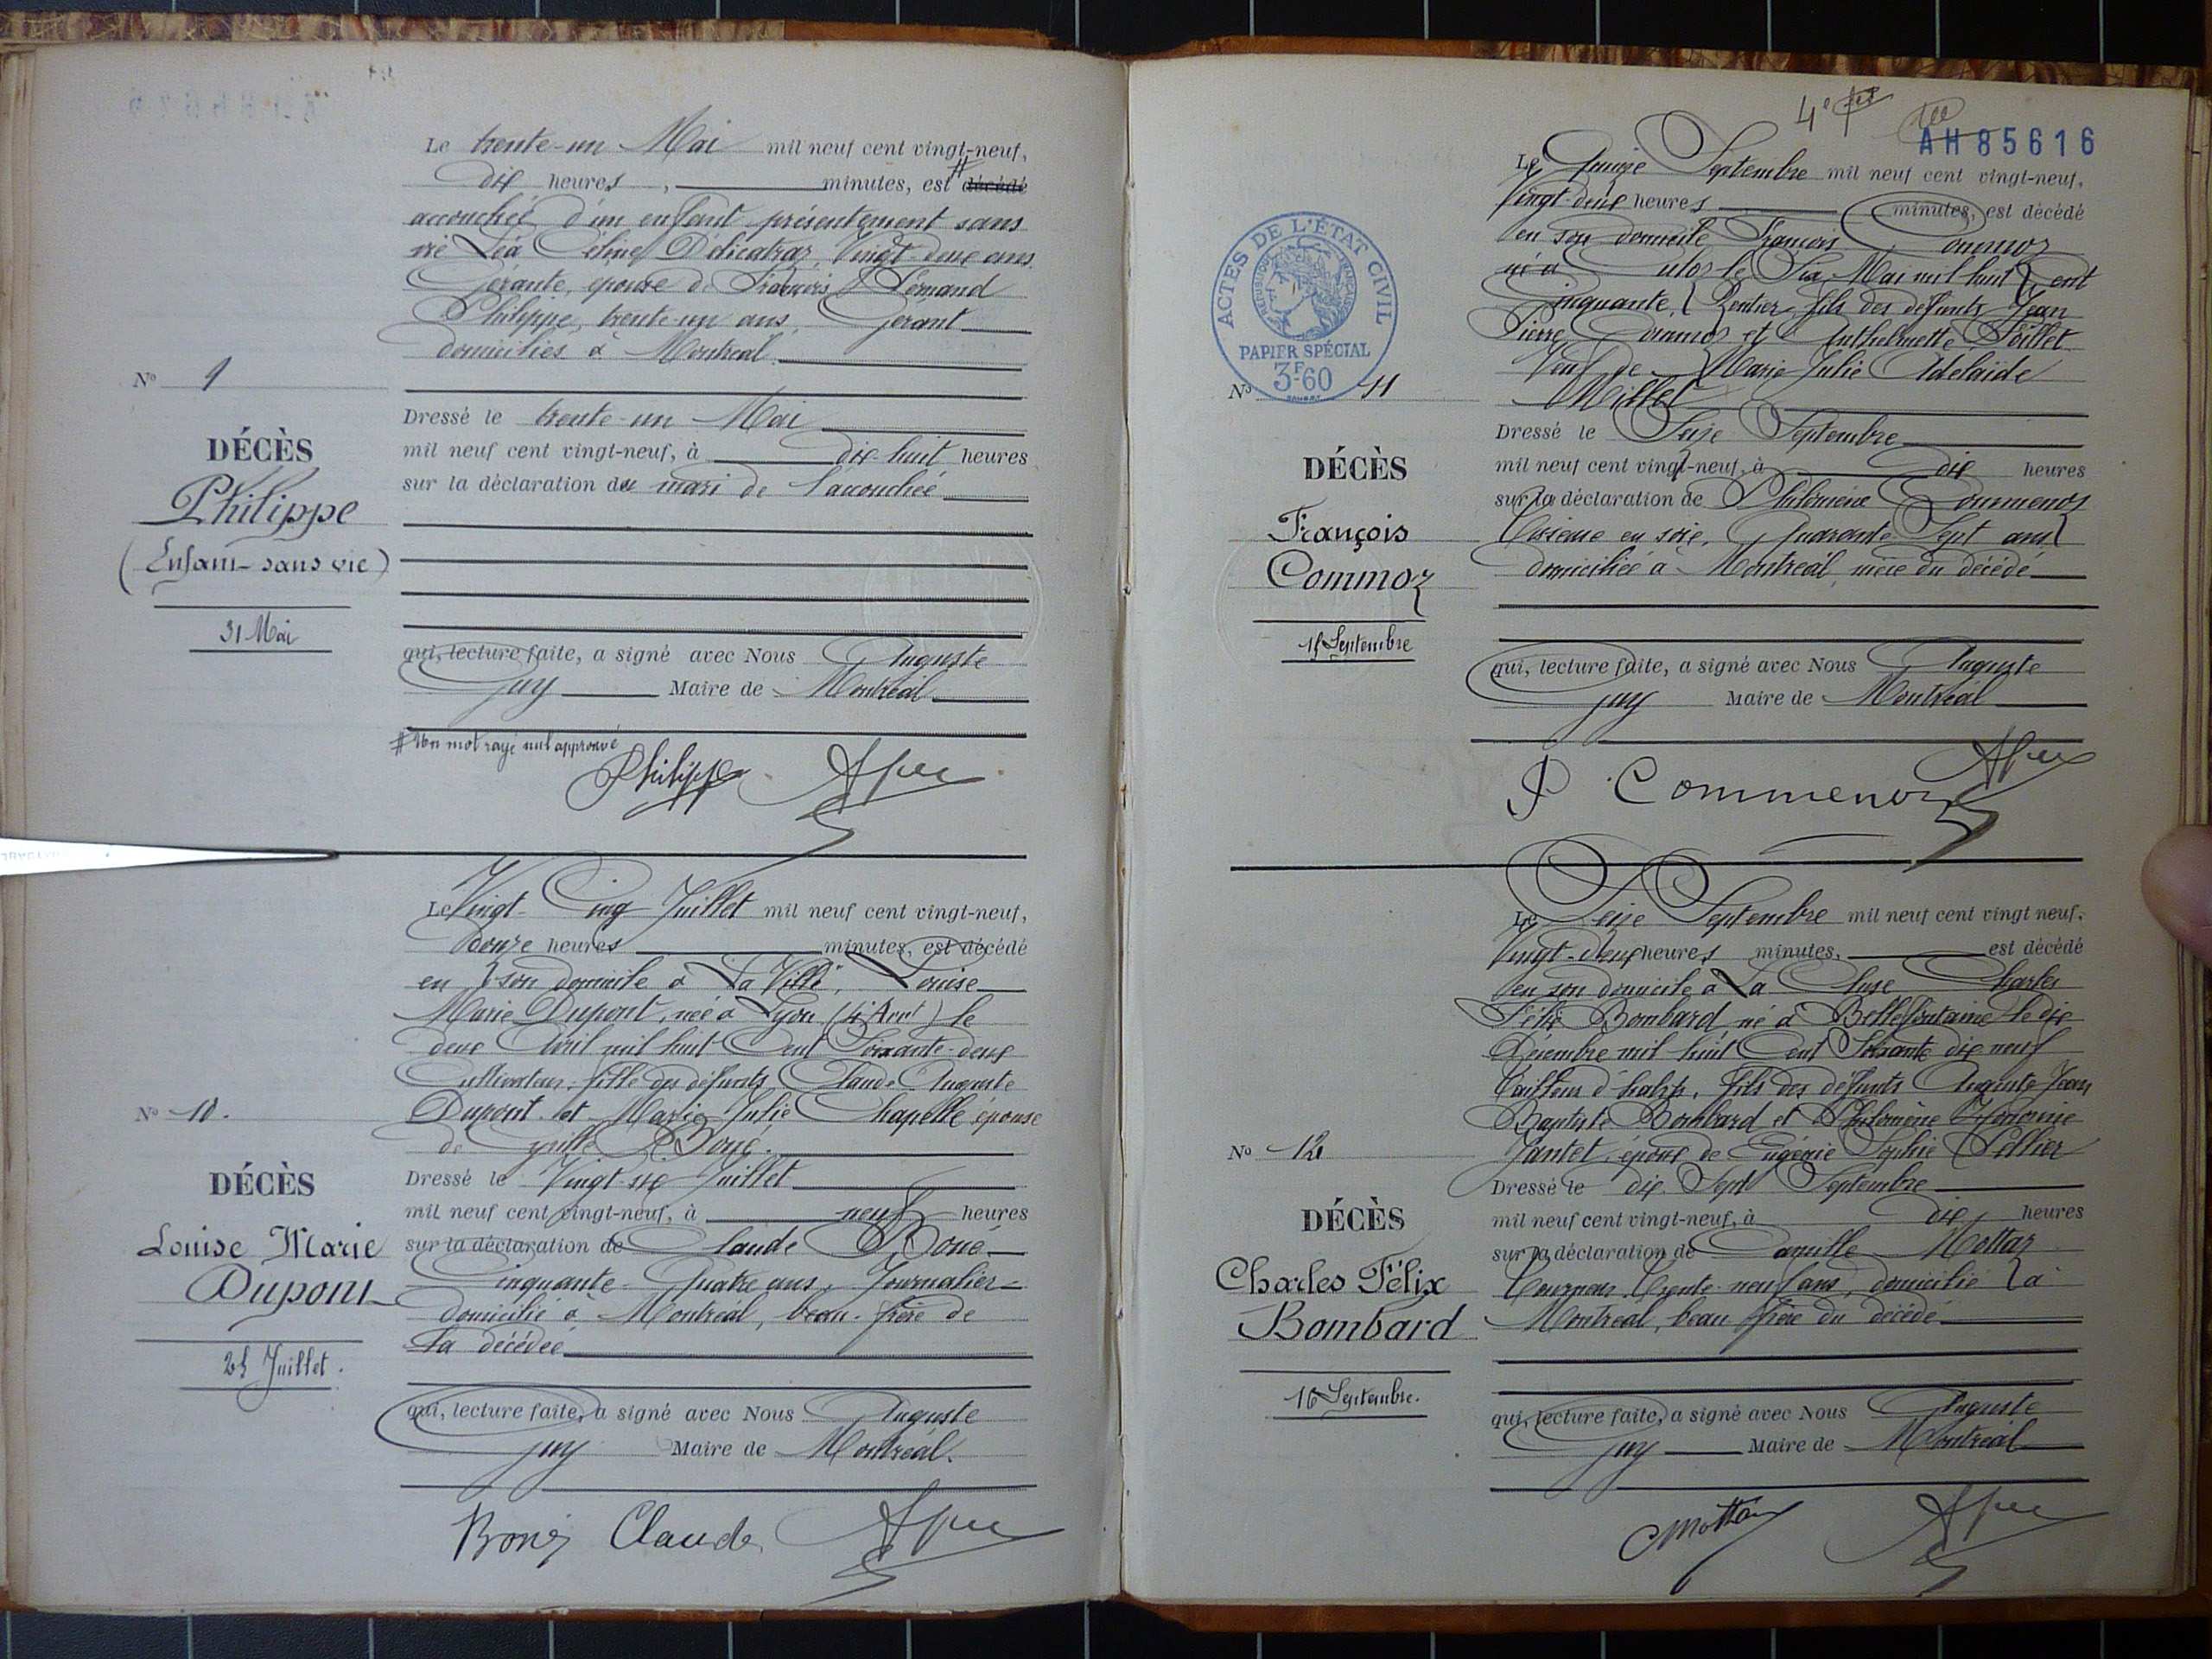 Le trente-un Mai mil neuf cent vingt-neuf,
dix heures, minutes, est # décédé
accouchée d'un enfant présentement sans
vie Léa Céline Délicatraz, Vingt-deux ans
Gérante, épouse de François Fernand
Philippe, trente-un ans, Gérant
domiciliés à Montréal
Nº 9
DÉCÈS
Philippe
(Enfant sans vie)
31 Mai
Dressé le trente-un Mai
mil neuf cent vingt-neuf, à dix-huit heures
sur la déclaration du mari de l'accouchée
qui, lecture faite, a signé avec Nous Auguste
Guy Maire de Montréal
# Un mot rayé nul approuvé
Philippe AGuy
Le Vingt-Cinq Juillet mil neuf cent vingt-neuf,
douze heures minutes, est décédé
en son domicile à La Ville, Louise
Marie Dupont, née à Lyon (4e Arrt) le
deux Avril mil huit Cent Soixante-deux
Cultivateur, fille des défunts Claude Auguste
Dupont et Marie Julie Chapelle épouse
de Cyrille Boné.
Nº 10.
DÉCÈS
Louise Marie
Dupont
25 Juillet.
Dressé le Vingt-six Juillet
mil neuf cent vingt-neuf, à neuf heures
sur la déclaration de Claude Boné
Cinquante-Quatre ans, Journalier
domicilié à Montréal, beau-frère de
la décédée
qui, lecture faite, a signé avec Nous Auguste
Guy Maire de Montréal.
Boné Claude AGuy
4e
AH85616
Le Quinze Septembre mil neuf cent vingt-neuf,
Vingt-deux heures minutes, est décédé
en son domicile François Commoz
né à le Six Mai mil huit Cent
Cinquante, Rentier, fils des défunts Jean
Pierre Commoz et Anthelmette Poillet
Veuf de Marie Julie Adelaïde
Millet
ACTES DE L'ÉTAT CIVIL
RÉPUBLIQUE FRANÇAISE
PAPIER SPÉCIAL
3F60
Nº 11
DÉCÈS
François
Commoz
15 Septembre
Dressé le Seize Septembre
mil neuf cent vingt-neuf, à dix heures
sur la déclaration de Philomène Commenoz
Tisseuse en soie, Quarante-Sept ans
domiciliée à Montréal, nièce du décédé
qui, lecture faite, a signé avec Nous Auguste
Guy Maire de Montréal
P Commenoz AGuy
Le Seize Septembre mil neuf cent vingt neuf,
Vingt-deux heures minutes, est décédé
en son domicile à La Cluse Charles
Félix Bombard, né à Bellefontaine le dix
Décembre mil huit Cent Soixante dix neuf
Tailleur d'habits, fils des défunts Auguste Jean
Baptiste Bombard et Philomène Honorine
Jantet, époux de Eugénie Sophie Pellier
Nº 12
DÉCÈS
Charles Félix
Bombard
16 Septembre.
Dressé le dix-Sept Septembre
mil neuf cent vingt-neuf, à dix heures
sur la déclaration de Camille Mottaz
Tourneur, Trente-neuf ans, domicilié à
Montréal, beau frère du décédé
qui, lecture faite, a signé avec Nous Auguste
Guy Maire de Montréal
CMottaz AGuy